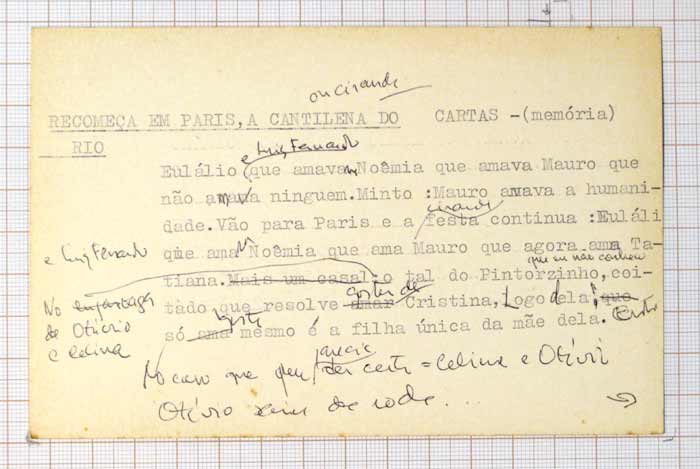 ou ciranda
RECOMEÇA EM PARIS, A CANTILENA DO CARTAS -(memória)
RIO
e Luis Fernando
Eulálio que amavam Noêmia que amava Mauro que
não amava ninguem.Minto :Mauro amava a humani-
ciranda
dade.Vão para Paris e a festa continua :Euláli
e Luis Fernando
que ama Noêmia que ama Mauro que agora ama Ta-
que eu não conheço
tiana.Mais um casal:o tal do Pintorzinho,coi-
gostar de
tado que resolve amar Cristina, Logo dela! que
gosta
só ama mesmo é a filha única da mãe dela.
No
de Otávio
e Celina
No caso que parecia dar certo = Celina e Otávi
Otávio saiu da roda...